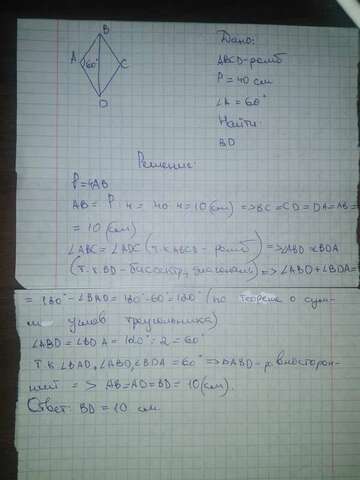 B
A 60° C
D
Дано:
ABCD - ромб
P = 40 см
∠A = 60°
Найти:
BD
Решение:
P = 4AB
AB = P : 4 = 40 : 4 = 10 (см) => BC = CD = DA = AB =
= 10 (см)
∠ABC = ∠ADC (т.к. ABCD - ромб) => ∠ABD = ∠BDA
(т.к. BD - биссектр., диагональ) => ∠ABD + ∠BDA =
= 180° - ∠BAD = 180° - 60° = 120° (по теореме о сум-
ме углов треугольника)
∠ABD = ∠BDA = 120° : 2 = 60°
т.к. ∠BAD, ∠ABD, ∠BDA = 60° => △ABD - равносторон-
ний => AB = AD = BD = 10 (см).
Ответ: BD = 10 см